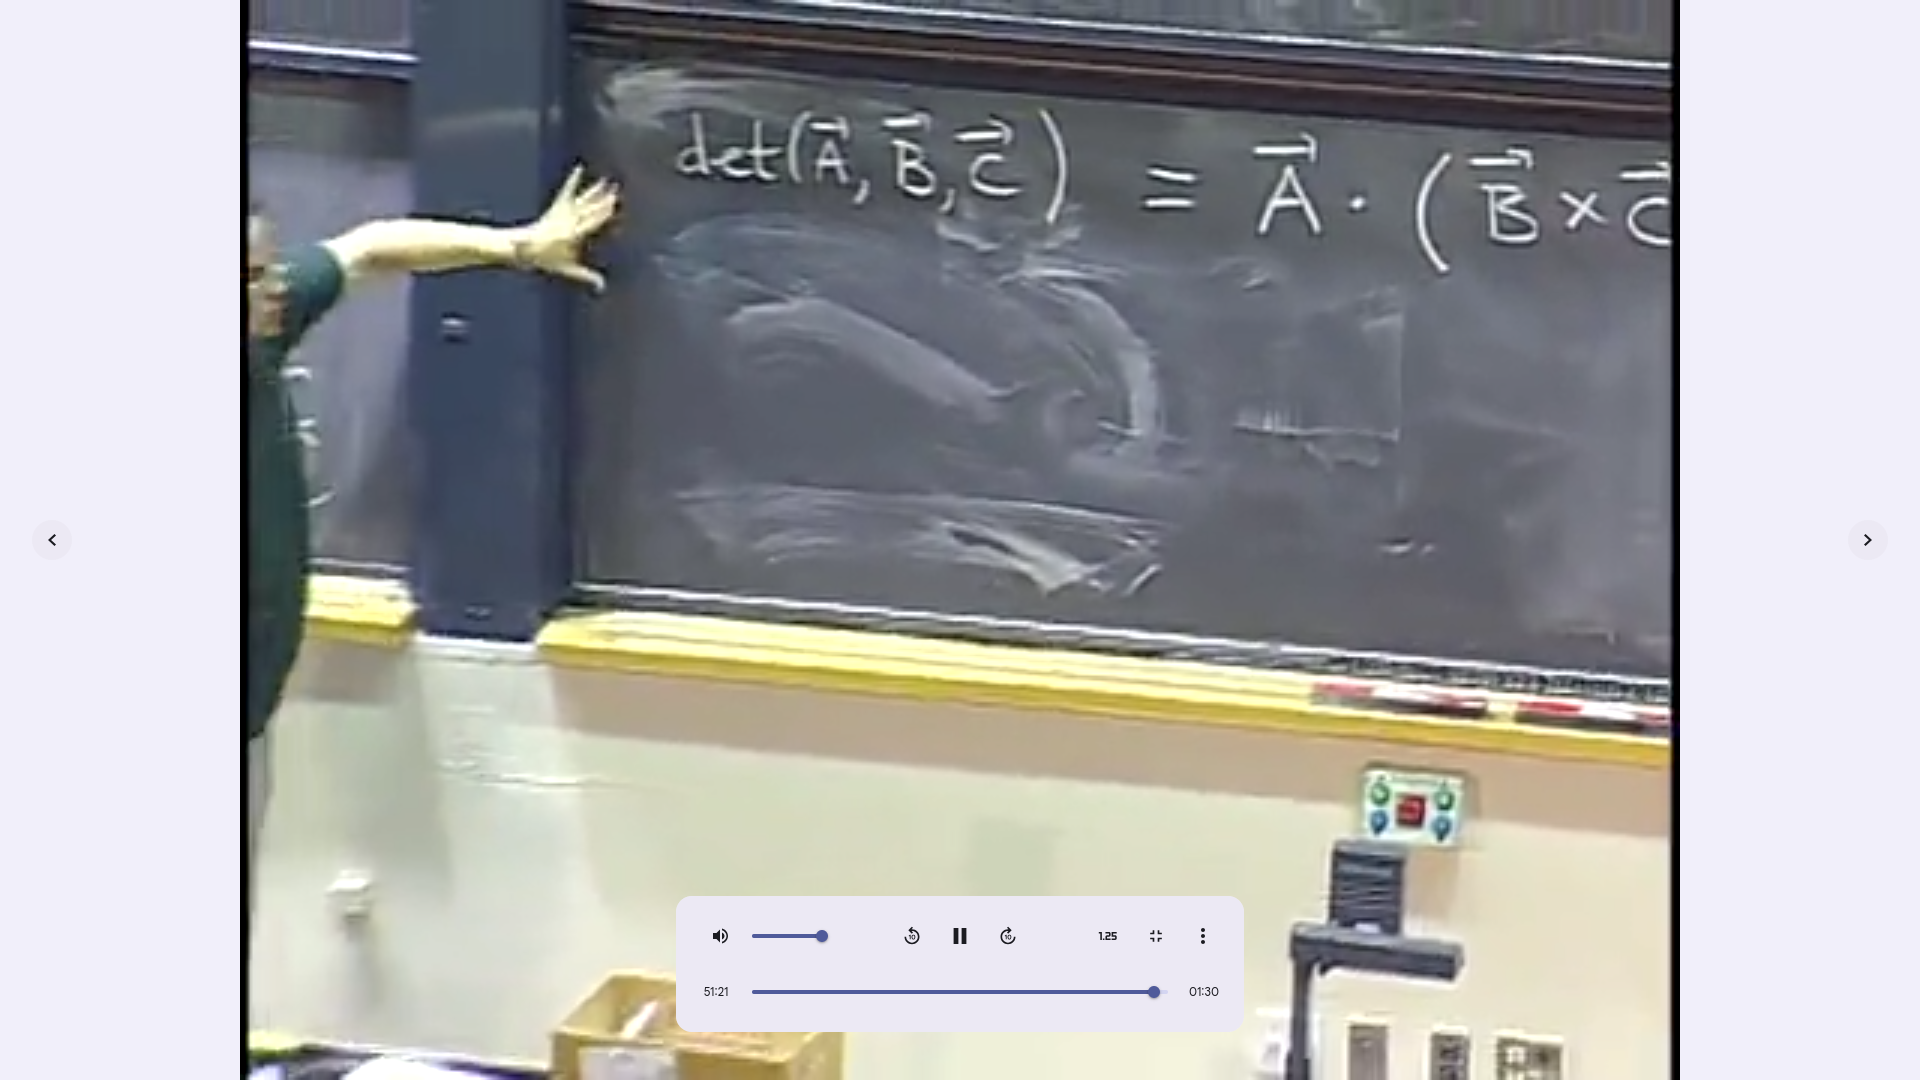 det(A⃗, B⃗, C⃗) = A⃗ · (B⃗ × C⃗
10
10
1.25
51:21
01:30